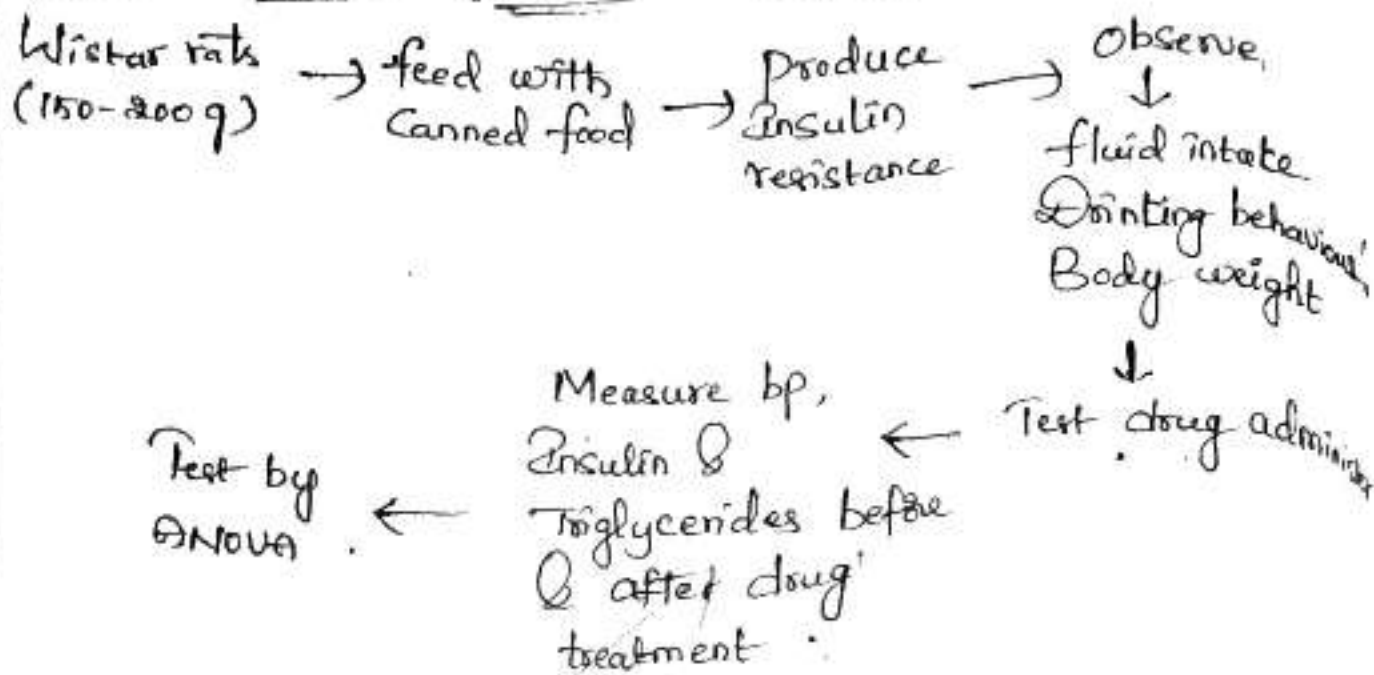 Wistar rats
(150-200g)
→ feed with
Canned food
→ produce
Insulin
resistance
→ Observe,
↓
fluid intake
Drinking behaviour,
Body weight
↓
Test drug administer
←
Measure bp,
Insulin &
Triglycerides before
& after drug
treatment.
←
Test by
ANOVA.